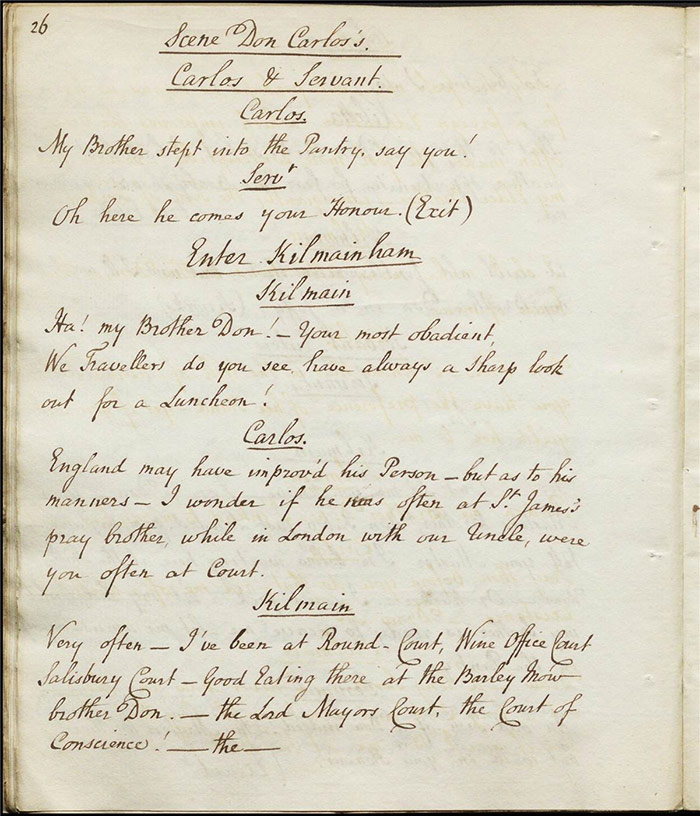 26
Scene Don Carlos's.
Carlos & Servant.
Carlos.
My Brother stept into the Pantry, say you!
Servt
Oh here he comes your Honour. (Exit)
Enter Kilmainham
Kilmain
Ha! my Brother Don! – Your most obedient,
We Travellers do you see, have always a sharp look
out for a Luncheon!
Carlos.
England may have improv'd his Person – but as to his
manners – I wonder if he was often at St. James's
pray brother, while in London with our Uncle, were
you often at Court.
Kilmain
Very often – I've been at Round-Court, Wine Office Court
Salisbury Court – Good Eating there at the Barley Mow
brother Don. – the Lord Mayors Court, the Court of
Conscience! – the –